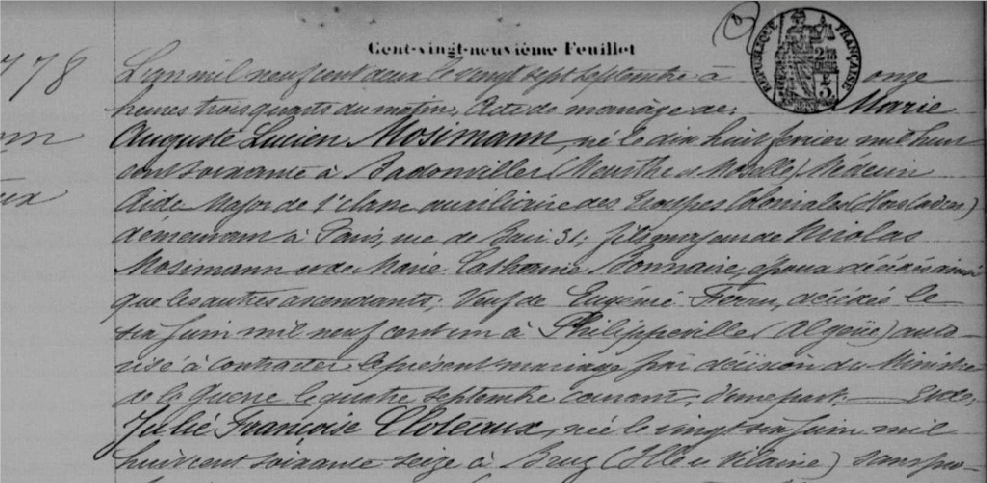 Cent-vingt-neuvième Feuillet
RÉPUBLIQUE FRANÇAISE
778
L'an mil neuf cent deux le vingt sept septembre à onze
heures trois quarts du matin. Acte de mariage de: Marie
Auguste Lucien Mosimann, né le dix huit fevrier mil huit
cent soixante à Badonviller (Meurthe et Moselle) Médecin
Aide Major de 1e classe auxiliaire des Troupes Coloniales (Hors Cadres)
demeurant à Paris, rue de Buci 31; fils majeur de Nicolas
Mosimann et de Marie Catherine Bonnaire, époux décédés ainsi
que les autres ascendants; Veuf de Eugénie décédée le
six Juin mil neuf cent un à Philippeville (Algérie) auto
risé à contracter le présent mariage par décision du Ministre
de la Guerre le quatre septembre courant, d'une part. Et de:
Julie Françoise Cloteaux, née le vingt six Juin mil
huit cent soixante seize à Bruz (Ille et Vilaine) sans pro-